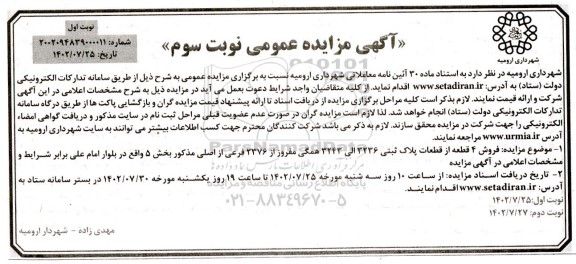 نوبت اول
شماره: ۲۰۰۲۰۹۴۸۳۹۰۰۰۰۱۱
تاریخ: ۱۴۰۲/۰۷/۲۵
«آگهی مزایده عمومی نوبت سوم»
شهرداری ارومیه
شهرداری ارومیه در نظر دارد به استناد ماده ۳۰ آئین نامه معاملاتی شهرداری ارومیه نسبت به برگزاری مزایده عمومی به شرح ذیل از طریق سامانه تدارکات الکترونیکی
دولت (ستاد) به آدرس: www.setadiran.ir اقدام نماید. از کلیه متقاضیان واجد شرایط دعوت بعمل می آید در مزایده ذیل به شرح مشخصات اعلامی در این آگهی
شرکت و ارائه قیمت نمایند. لازم بذکر است کلیه مراحل برگزاری مزایده از دریافت اسناد تا ارائه پیشنهاد قیمت مزایده گران و بازگشایی پاکت ها از طریق درگاه سامانه
تدارکات الکترونیکی دولت (ستاد) انجام خواهد شد. لذا لازم است مزایده گران در صورت عدم عضویت قبلی مراحل ثبت نام در سایت مذکور و دریافت گواهی امضاء
الکترونیکی را جهت شرکت در مزایده محقق سازند. لازم به ذکر می باشد شرکت کنندگان محترم جهت کسب اطلاعات بیشتر می توانند به سایت شهرداری ارومیه به
آدرس: www.urmia.ir مراجعه نمایند.
۱- موضوع مزایده: فروش ۴ قطعه از قطعات پلاک ثبتی ۳۲۳۶ الی ۳۲۴۳ همگی مفروز از ۳۲۷۶ فرعی از اصلی مذکور بخش ۵ واقع در بلوار امام علی برابر شرایط و
مشخصات اعلامی در آگهی مزایده
۲- تاریخ دریافت اسناد مزایده: از ساعت ۱۰ روز سه شنبه مورخه ۱۴۰۲/۰۷/۲۵ تا ساعت ۱۹ روز یکشنبه مورخه ۱۴۰۲/۰۷/۳۰ در بستر سامانه ستاد به
آدرس: www.setadiran.ir اقدام نمایند.
نوبت اول: ۱۴۰۲/۷/۲۵
نوبت دوم: ۱۴۰۲/۷/۲۷
۰۲۱-۸۸۳۴۹۶۷۰-۵
مهدی زاده - شهردار ارومیه